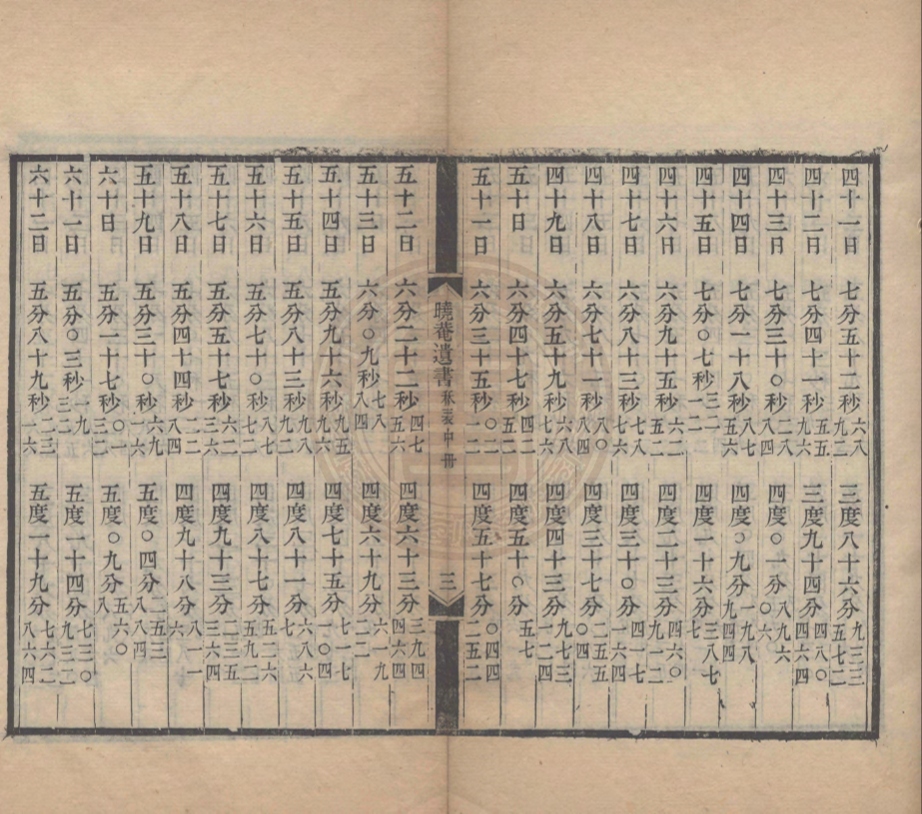 四十一日　七分五十二秒六八九二　三度八十六分九三三五七二
四十二日　七分四十一秒五五九六　三度九十四分四八〇四六四
四十三日　七分三十〇秒二八八四　四度〇一分八九六〇六
四十四日　七分一十八秒八七五六　四度〇九分一九八九四四
四十五日　七分〇七秒三二一二　四度一十六分三八七七
四十六日　六分九十五秒六二五二　四度二十三分四六〇九一二
四十七日　六分八十三秒七八七六　四度三十〇分四一七一六四
四十八日　六分七十一秒八〇八四　四度三十七分二五五〇四
四十九日　六分五十九秒六八七六　四度四十三分九七三一二四
五十日　六分四十七秒四二五二　四度五十〇分五七
五十一日　六分三十五秒〇二一二　四度五十七分〇四四二五二
曉菴遺書 秝表中冊 三
五十二日　六分二十二秒四七五六　四度六十三分三九四四六四
五十三日　六分〇九秒七八八四　四度六十九分六一九二二
五十四日　五分九十六秒九五九六　四度七十五分七一七一〇四
五十五日　五分八十三秒九八九二　四度八十一分六八六七
五十六日　五分七十〇秒八七七二　四度八十七分五二六五九二
五十七日　五分五十七秒六二三六　四度九十三分二三五三六四
五十八日　五分四十四秒二二八四　四度九十八分八一一六
五十九日　五分三十〇秒六九一六　五度〇四分二五三八八四
六十日　五分一十七秒〇一三二　五度〇九分五六〇八
六十一日　五分〇三秒一九三二　五度一十四分七三〇九三二
六十二日　五分八十九秒二三一六　五度一十九分七六二八六四